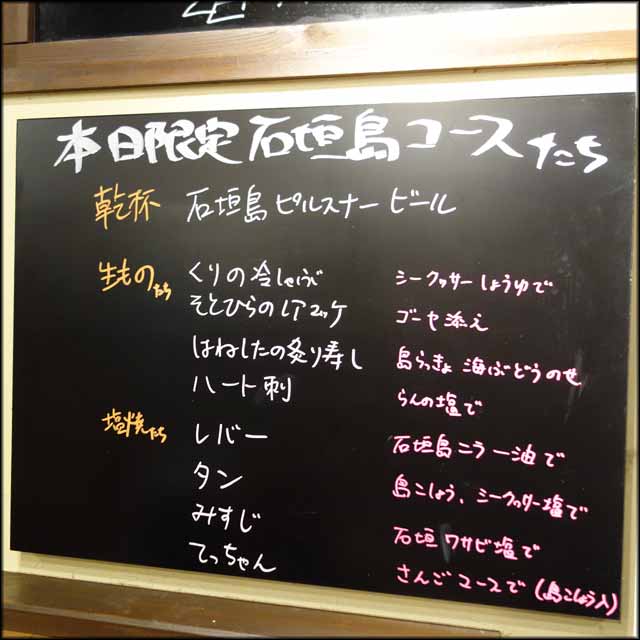 本日限定石垣島コースたち
乾杯 石垣島ピルスナービール
生ものたち くりの冷しゃぶ シークヮサーしょうゆで
そとひらのレアユッケ ゴーヤ添え
はねしたの炙り寿し 島らっきょ 海ぶどうのせ
ハート刺 らんの塩で
塩焼たち レバー 石垣島ニラー油で
タン 島こしょう、シークヮサー塩で
みすじ 石垣ワサビ塩で
てっちゃん さんごコースで(島こしょう入)